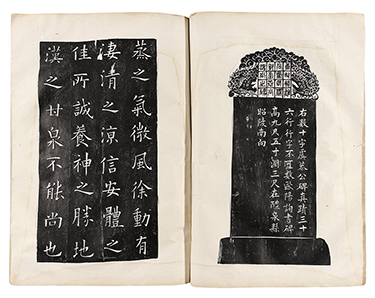 右數十字虞恭公碑真蹟三十
六行行字不可數歐陽詢書碑
高九尺五寸濶三尺在醴泉縣
昭陵南向
蒸之氣微風徐動有
淒清之涼信安體之
佳所誠養神之勝地
漢之甘泉不能尚也